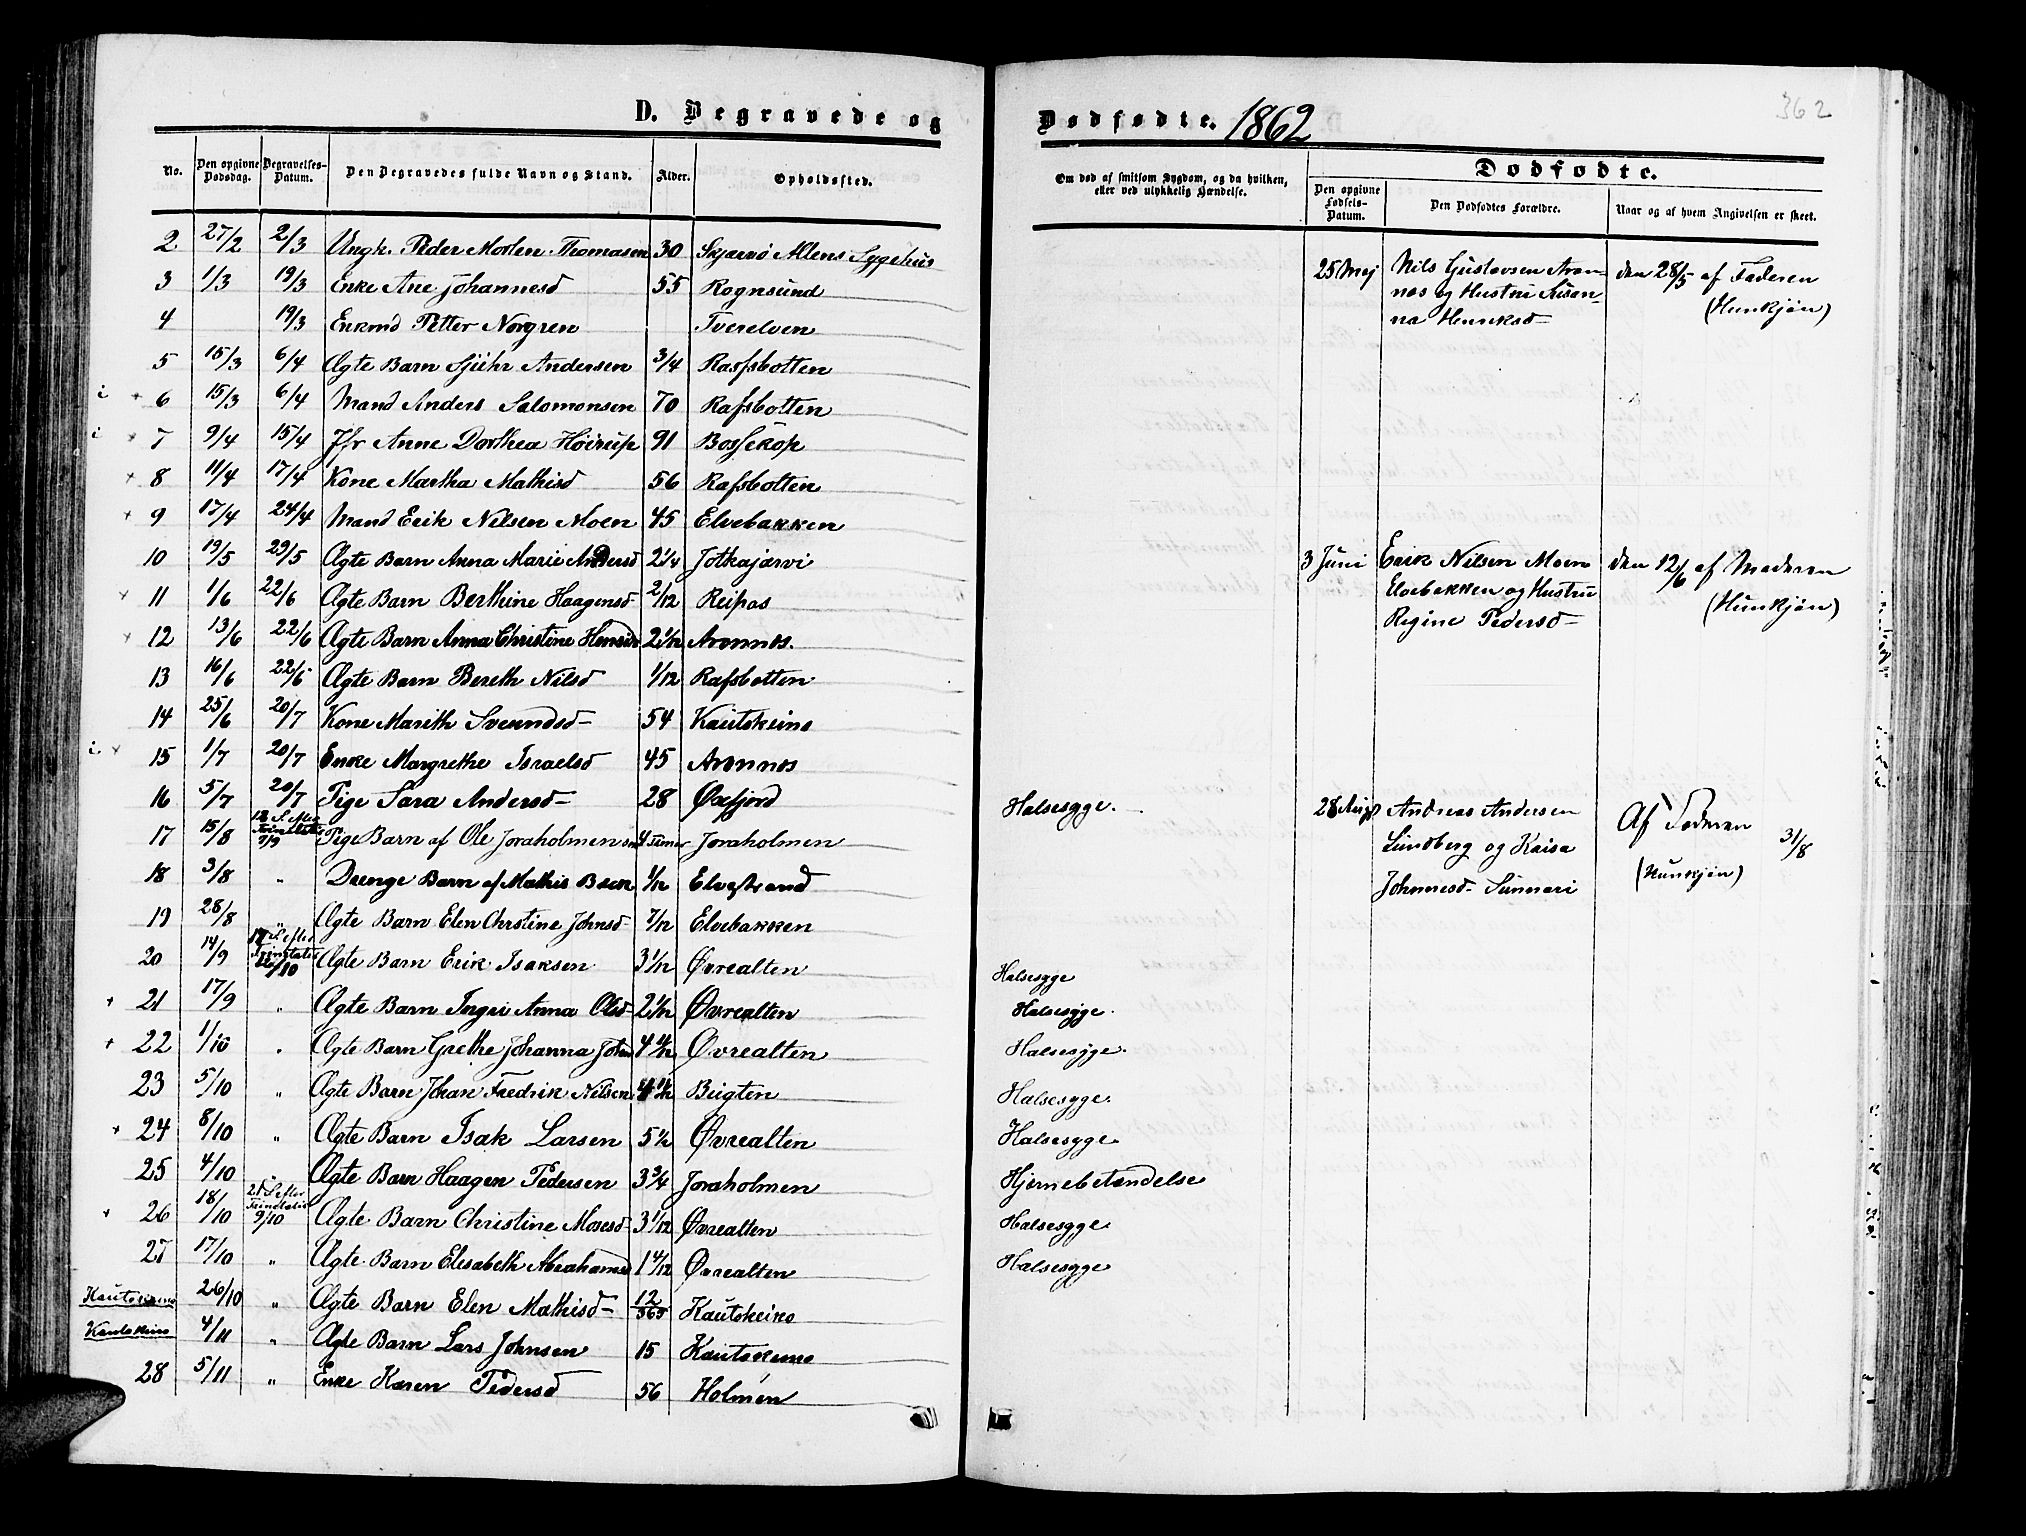 D. Begravede og
No. Den opgivne Dødsdag. Begravelses-Datum. Den Begravedes fulde Navn og Stand. Alder. Opholdssted.
2 27/2 2/3 Ungk. Peder Morten Thomasen 30 Skjærvø Altens Sygehus
3 1/3 19/3 Enke Ane Johannesd 55 Rognsund
4 19/3 Enkmd Petter Norgren Tverelven
5 15/3 6/4 Ægte Barn Sjuhr Andersen 3/4 Rafsbotten
i + 6 15/3 6/4 Mand Anders Salomonsen 70 Rafsbotten
i + 7 9/4 15/4 Jfr Anne Dorthea Høirup 91 Bossekop
+ 8 11/4 17/4 Kone Martha Mathisd 56 Rafsbotten
+ 9 17/4 24/4 Mand Erik Nilsen Moen 45 Elvebakken
10 19/5 29/5 Ægte Barn Anna Marie Andersd 2 1/4 Jotkajarvi
+ 11 1/6 22/6 Ægte Barn Berthine Haagensd 2/12 Reipas
+ 12 13/6 22/6 Ægte Barn Anna Christine 2 1/12 Aronnæs.
13 16/6 22/6 Ægte Barn Bereth Nilsd 1/12 Rafsbotten
14 25/6 20/7 Kone Marith Svendsd 54 Kautokeino
i + 15 1/7 20/7 Enke Margrethe Israelsd 45 Aronnæs
16 5/7 20/7 Pige Sara Andersd 28 Øxfjord
17 15/8 12 S. efter Trinitatis 7/9 Pige Barn af Ole Joraholmen 4 Timer Joraholmen
18 3/8 " Drenge Barn af Mathis Bæck 1/12 Elvestrand
19 28/8 " Ægte Barn Elen Christine Johnsd 7/12 Elvebakken
20 14/9 17 S. efter Trinitatis /10 Ægte Barn Erik Isaksen 3 1/12 Øvrealten
+ 21 17/9 " Ægte Barn Ingri Anna Olsd 2 1/12 Øvrealten
+ 22 1/10 " Ægte Barn Grethe Johanna 4 4/12 Øvrealten
23 5/10 " Ægte Barn Johan Fredrik Nilsen Bugten
+ 24 8/10 " Ægte Barn Isak Larsen 5 1/2 Øvrealten
25 4/10 " Ægte Barn Haagen Pedersen 3 3/4 Joraholmen
+ 26 18/10 21 S. efter Trinitatis 9/10 Ægte Barn Christine Mosesd 3 1/12 Øvrealten
27 17/10 " Ægte Barn Elisabeth Abrahamsd 1 4/12 Øvrealten
Kautokeino 26/10 " Ægte Barn Elen Mathisd 12/365 Kautokeino
Kautokeino 4/11 " Ægte Barn Lars Johnsen 15 Kautokeino
28 5/11 " Enke Karen Pedersd 56 Holmen
Dødfødte. 1862
362
Om død af smitsom Sygdom, og da hvilken, eller ved ulykkelig Hændelse.
Dødfødte.
Den opgivne Fødsels-Datum. Den Dødfødtes Forældre. Naar og af hvem Angivelsen er skeet.
25 Mej Nils Gustavsen Aron- den 28/5 af Faderen
næs og Hustru Susan- (Hunkjøn)
na Henriksd
3 Juni Erik Nilsen Moen den 12/6 af Moderen
Elvebakken og Hustru (Hunkjøn)
Regine Pedersd
Halsesyge. 28 Aug Andreas Andersen Af Faderen 31/8
Lundberg og Kaisa (Hunkjøn)
Johnnesd Sunnari
Halsesyge
Halsesyge.
Halsesyge.
Halsesyge.
Halsesyge.
Hjernebetændelse
Halsesyge
Halsesyge